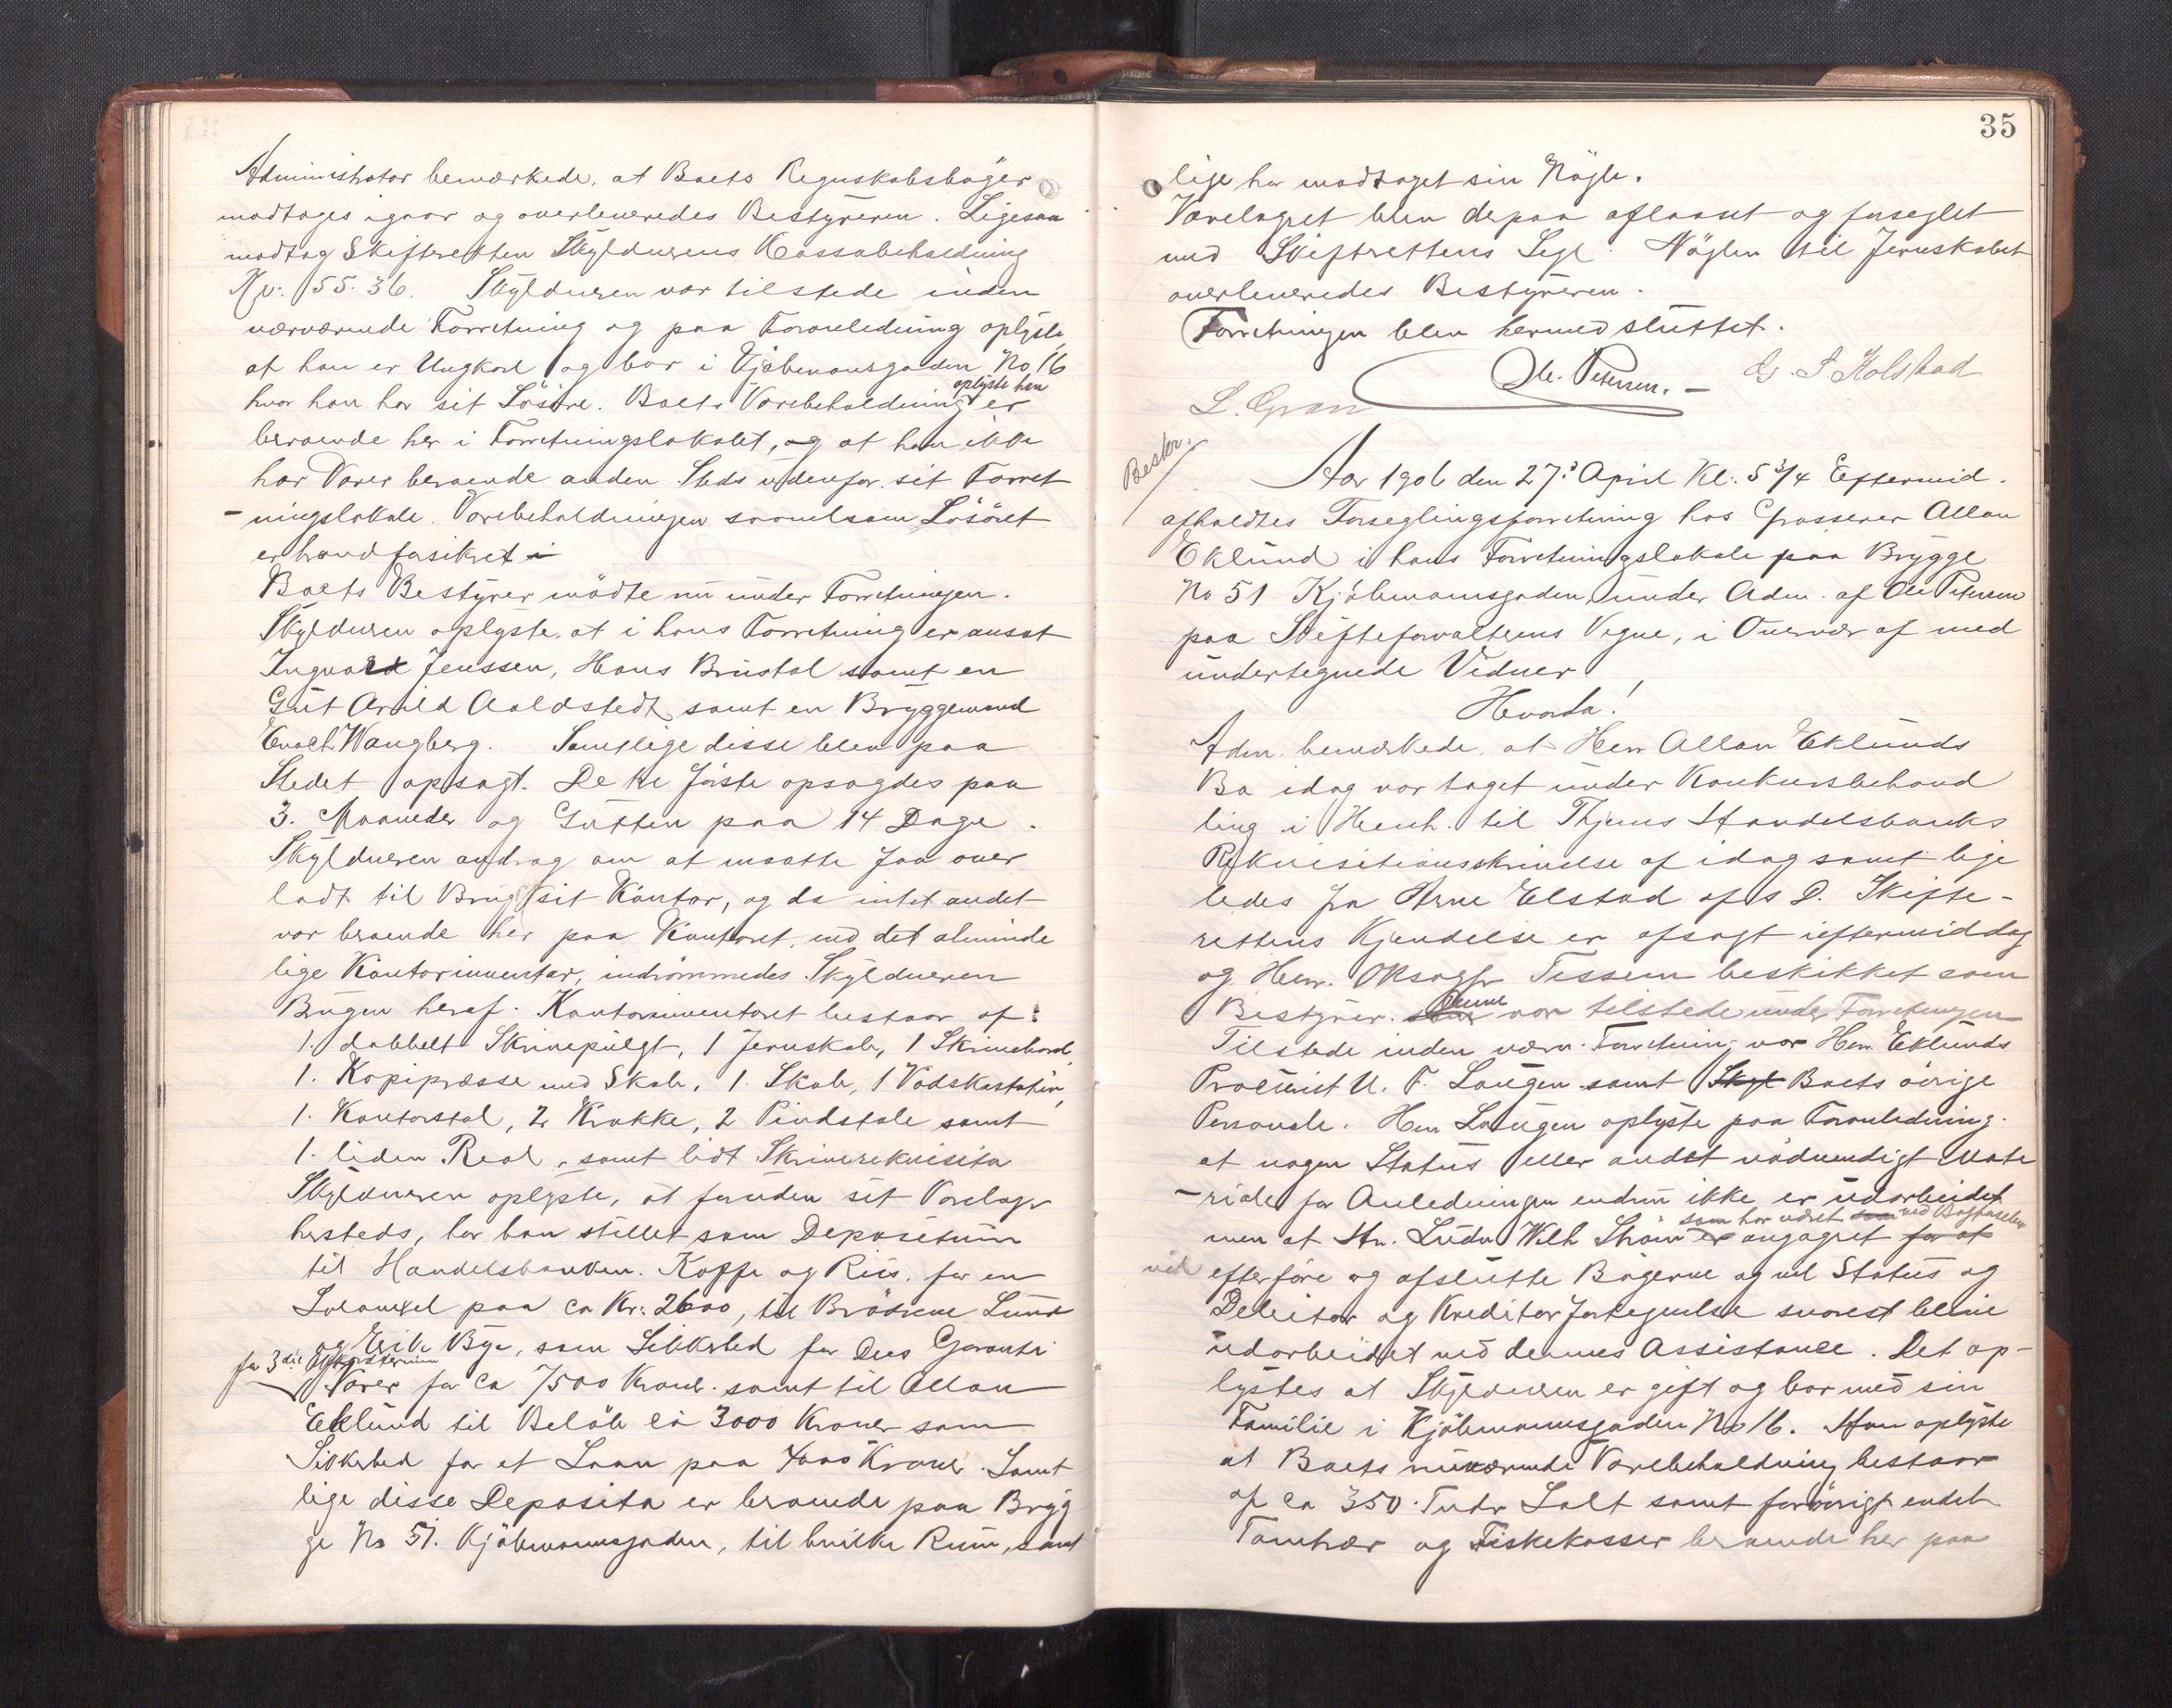 Administrator bemærkede, at Boets Regnskabsbøger
modtoges igaar og overleveredes Bestyreren. Ligesaa
modtog Skifteretten Skyldnerens Kassabeholdning
Kr. 55.36. Skyldneren var tilstede under
nærværende Forretning og paa Foranledning oplyste,
at han er Ungkarl og bor i Kjøbmansgaden No 16
hvor han har sit Løsøre. Boets Varebeholdning oplyste han er
beroende her i Forretningslokalet, og at han ikke
har Varer beroende anden Steds udenfor sit Forret
-ningslokale. Varebeholdningen saavelsom Løsøret
er brandforsikret i
Boets Bestyrer mødte nu under Forretningen.
Skyldneren oplyste, at i hans Forretning er ansat
Ingvald Jenssen, Hans Brustol samt en
Gut Arild Aaldstedt samt en Bryggemand
Enoch Wangberg. Samtlige disse blev paa
Stedet opsagt. De to første opsagdes paa
3. Maaneder og Gutten paa 14 Dage.
Skyldneren androg om at maatte faa over
ladt til Brug sit Kontor, og da intet andet
var beroende her paa Kontoret, end det alminde
lige Kontorinventar, indrømmedes Skyldneren
Brugen heraf. Kontorinventaret bestaar af:
1. dobbelt Skrivepulgt, 1 Jernskab, 1 Skrivebord
1. Kopipresse med Skab, 1. Skab, 1 Vadskestativ,
1. Kontorstol, 2 Krakke, 2 Pindstole samt
1. liden Reol, samt lidt Skriverekvisita
Skyldneren oplyste, at foruden sit Varelager
hersteds, har han stillet som Depositum
til Handelsbanken. Kaffe og Riis. for en
Solavexel paa ca Kr. 2600, til Brødrene Lund
og Erik Bye, som Sikkerhed for Dres Garanti
for 3die
Varer for ca 7500 Kroner. samt til Allan
Eklund til Beløb ca 3000 Kroner som
Sikkerhed for et Laan paa 4000 Kroner. Samt
lige disse Deposita er beroende paa Bryg
ge No 51. Kjøbmannsgaden, til hvilke Rum, samt
35
lige har modtaget sin Nøgle.
Varelagret blev derpaa aflaaset og forseglet
med Skifterettens Segl. Nøglen til Jernskabet
overleveredes Bestyreren.
Forretningen blev hermed sluttet.
Ole Petersen. - G. S Kolstad
L. Gran
Beskr.
Aar 1906 den 27' April Kl. 5 3/4 Eftermid.
afholdtes Forseglingsforretning hos Grosserer Allan
Eklund i hans Forretningslokale paa Brygge
No 51 Kjøbmannsgaden, under Adm. af Ole Petersen
paa Skifteforvalterens Vegne, i Overvær af med
undertegnede Vidner
Hvorda!
Adm. bemærkede, at Herr Allan Eklunds
Bo idag var taget under Konkursbehand
ling i Henh. til Thjems Handelsbanks
Rekvisitionsskrivelse af idag samt lige
ledes fra Arne Elstad af s D. Skifte-
rettens Kjendelse er afsagt ieftermiddag
og Herr. Oksagf. Tessem beskikket som
Bestyrer. som Denne var tilstede under Forretningen
Tilstede under nærv. Forretning var Herr Eklunds
Procurist U. F. Laugen samt Skyl Boets øvrige
Personale. Herr Laugen oplyste paa Foranledning.
at nogen Status eller andet nødvendigt Mate
-riale for Anledningen endnu ikke er udarbeidet
men at Hr. Ludv Wilh Strøm er som har været som ved Bogførselen engageret for at
vil efterføre og afslutte Bøgerne og vil Status og
Debitor og Kreditor fortegnelse snarest blive
udarbeidet med dennes Assistance. Det op-
lystes at Skyldneren er gift og bor med sin
Familie i Kjøbmannsgaden No 16. Han oplyste
at Boets nuværende Varebeholdning bestaar
af ca 350 Tndr Salt samt forøvrigt endel
Tomtrær og Fiskekasser beroende her paa